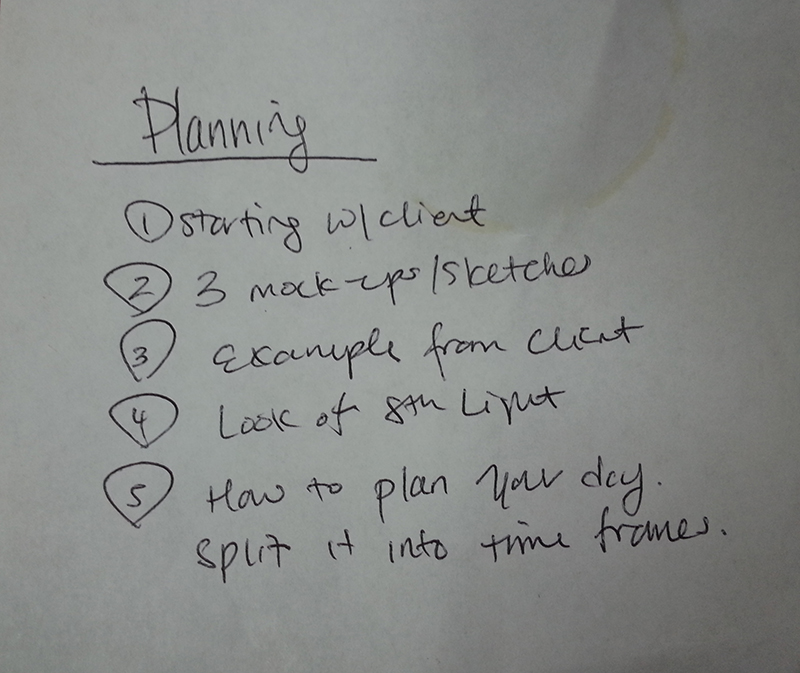 Planning
① starting w/client
② 3 mock-ups/sketches
③ Example from client
④ Look of 8th Light
⑤ How to plan your day.
split it into time frames.